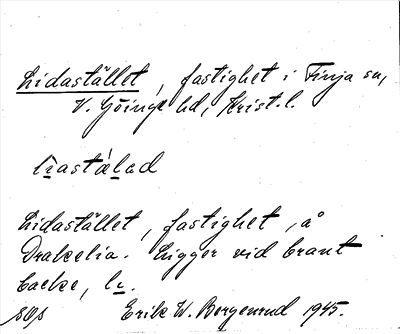 Lidastället, fastighet i Finja sn,
V. Göinge hd, Krist. l.
Lidastället, fastighet, å
Drakelia. Ligger vid brant
backe,
Erik W. Borgenrud 1945.